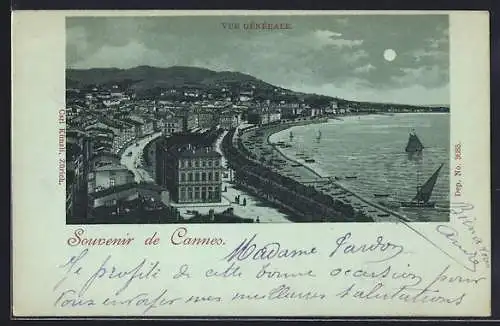 VUE GÉNÉRALE.
Carl Künzli, Zürich.
Dep. No. 3035.
Souvenir de Cannes.
Madame Pardon
Je profite de cette bonne occasion pour
vous envoyer mes meilleures salutations